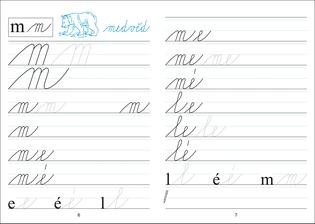 m m medvěd
m m
m
m m m
m
m e
m é
e e é l l
6
m e
me me
mé
le
le le
lé
l l é m m
7